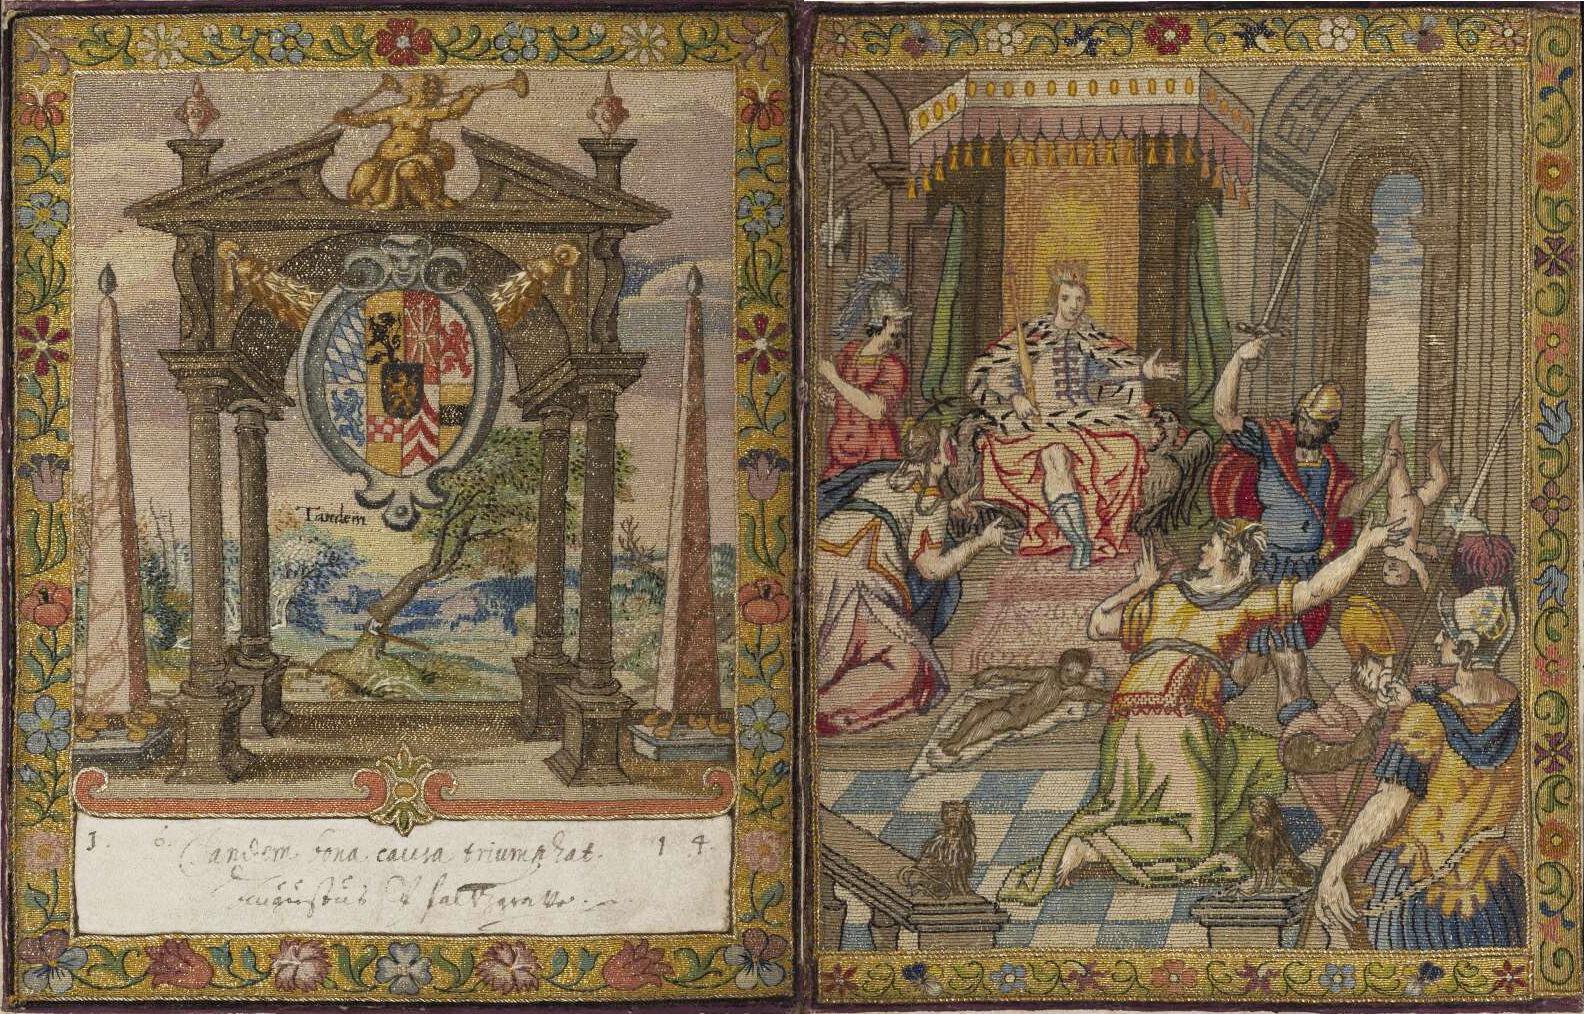 Tandem
1. 6. 1 4.
Tandem bona causa triumphat.
Augustus Pfaltzgrave